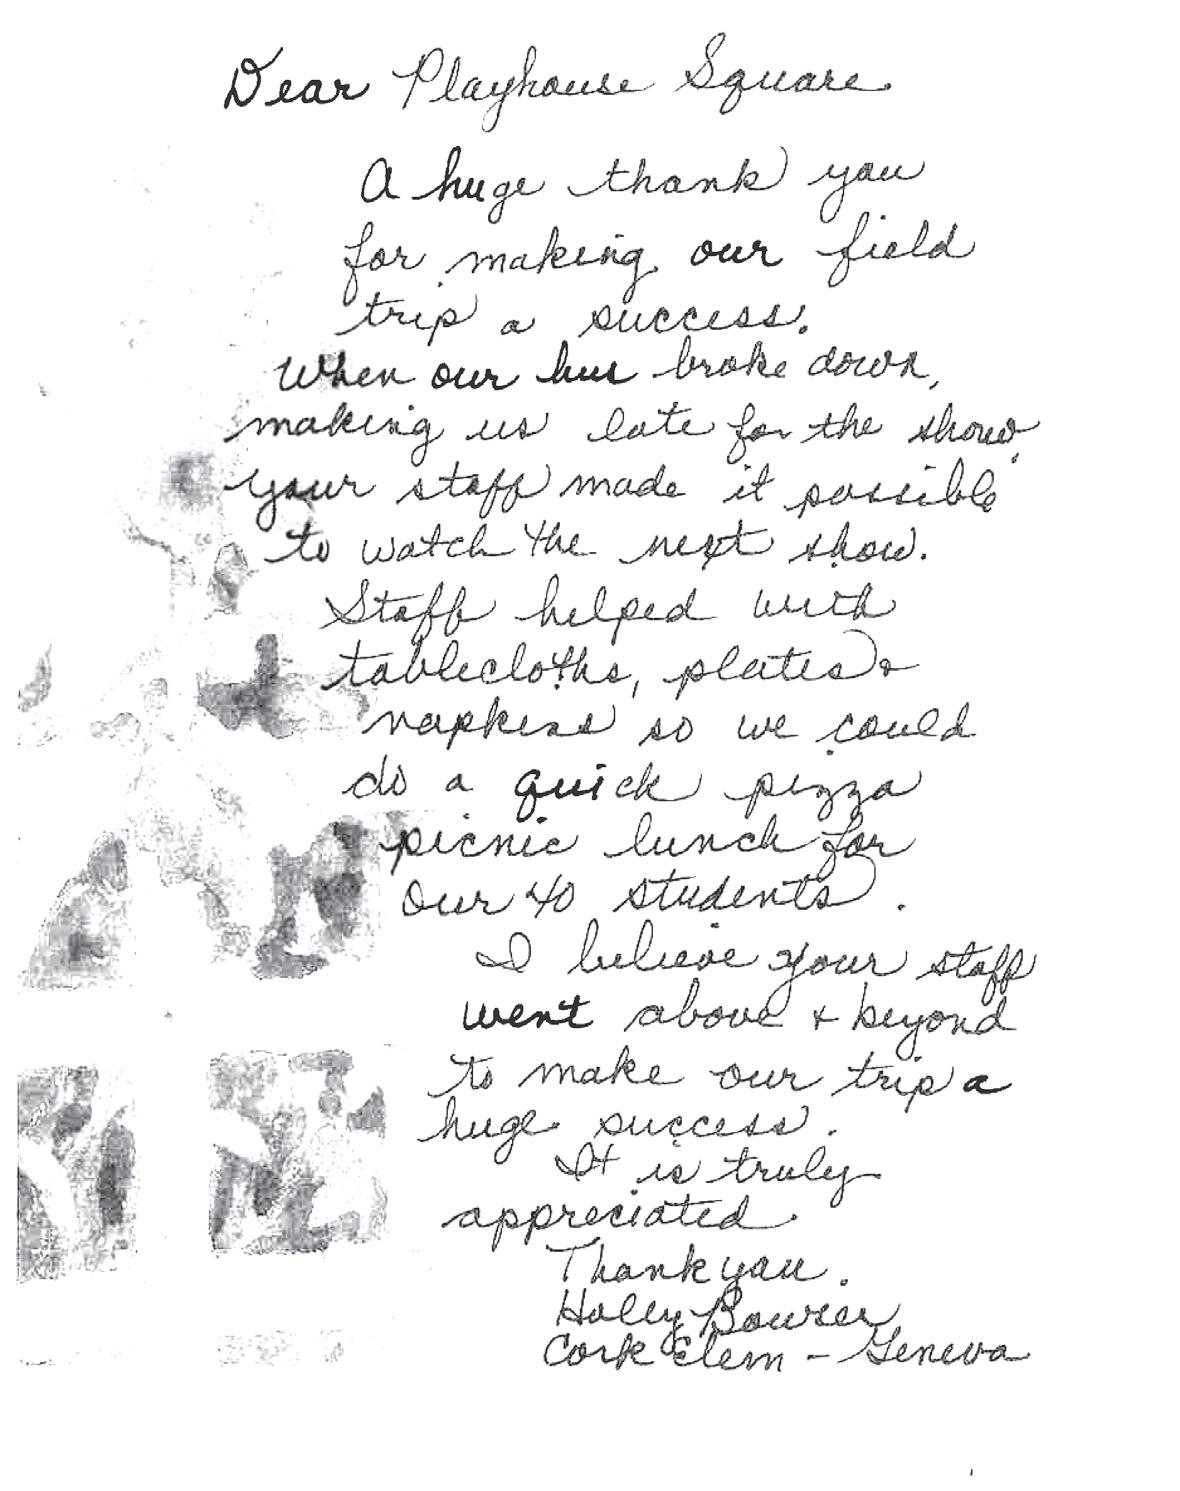 Dear Playhouse Square
A huge thank you
for making our field
trip a success.
When our bus broke down,
making us late for the show,
your staff made it possible
to watch the next show.
Staff helped with
tablecloths, plates &
napkins so we could
do a quick pizza
picnic lunch for
our 40 students.
I believe your staff
went above & beyond
to make our trip a
huge success.
It is truly
appreciated.
Thank you.
Holly Bowser
Cork Elem - Geneva